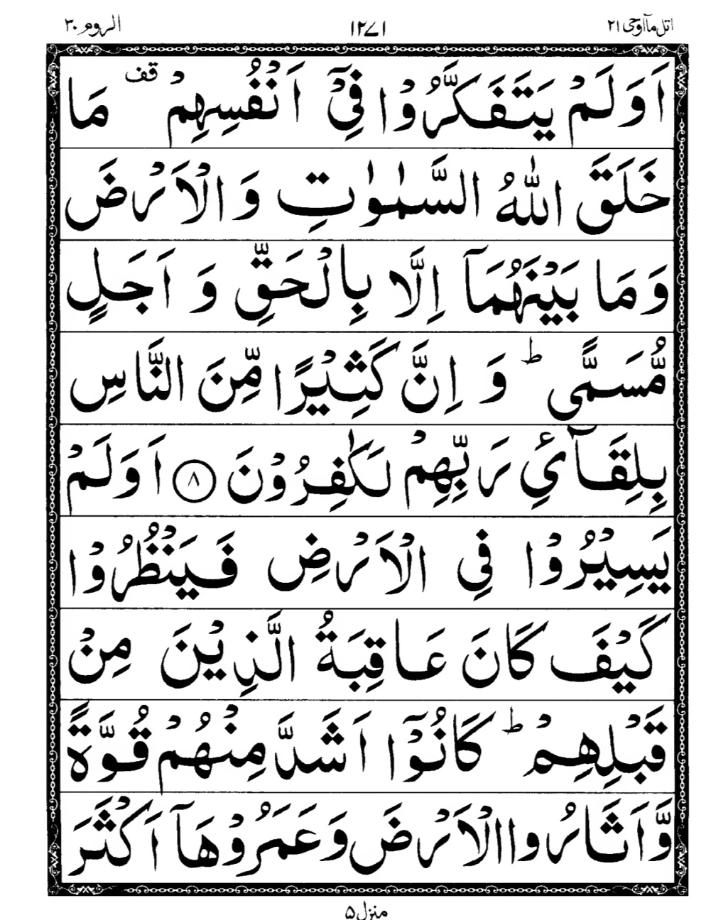 اتل مآاوحی ۲۱ ۱۲۷۱ الروم ۳۰
اَوَلَمْ یَتَفَكَّرُوْا فِیْۤ اَنْفُسِهِمْ قف مَا
خَلَقَ اللّٰهُ السَّمٰوٰتِ وَ الْاَرْضَ
وَ مَا بَیْنَهُمَاۤ اِلَّا بِالْحَقِّ وَ اَجَلٍ
مُّسَمًّی ؕ وَ اِنَّ كَثِیْرًا مِّنَ النَّاسِ
بِلِقَآئِ رَبِّهِمْ لَكٰفِرُوْنَ ﴿۸﴾ اَوَلَمْ
یَسِیْرُوْا فِی الْاَرْضِ فَیَنْظُرُوْا
كَیْفَ كَانَ عَاقِبَةُ الَّذِیْنَ مِنْ
قَبْلِهِمْ ؕ كَانُوْۤا اَشَدَّ مِنْهُمْ قُوَّةً
وَّ اَثَارُوا الْاَرْضَ وَ عَمَرُوْهَاۤ اَكْثَرَ
منزل ۵